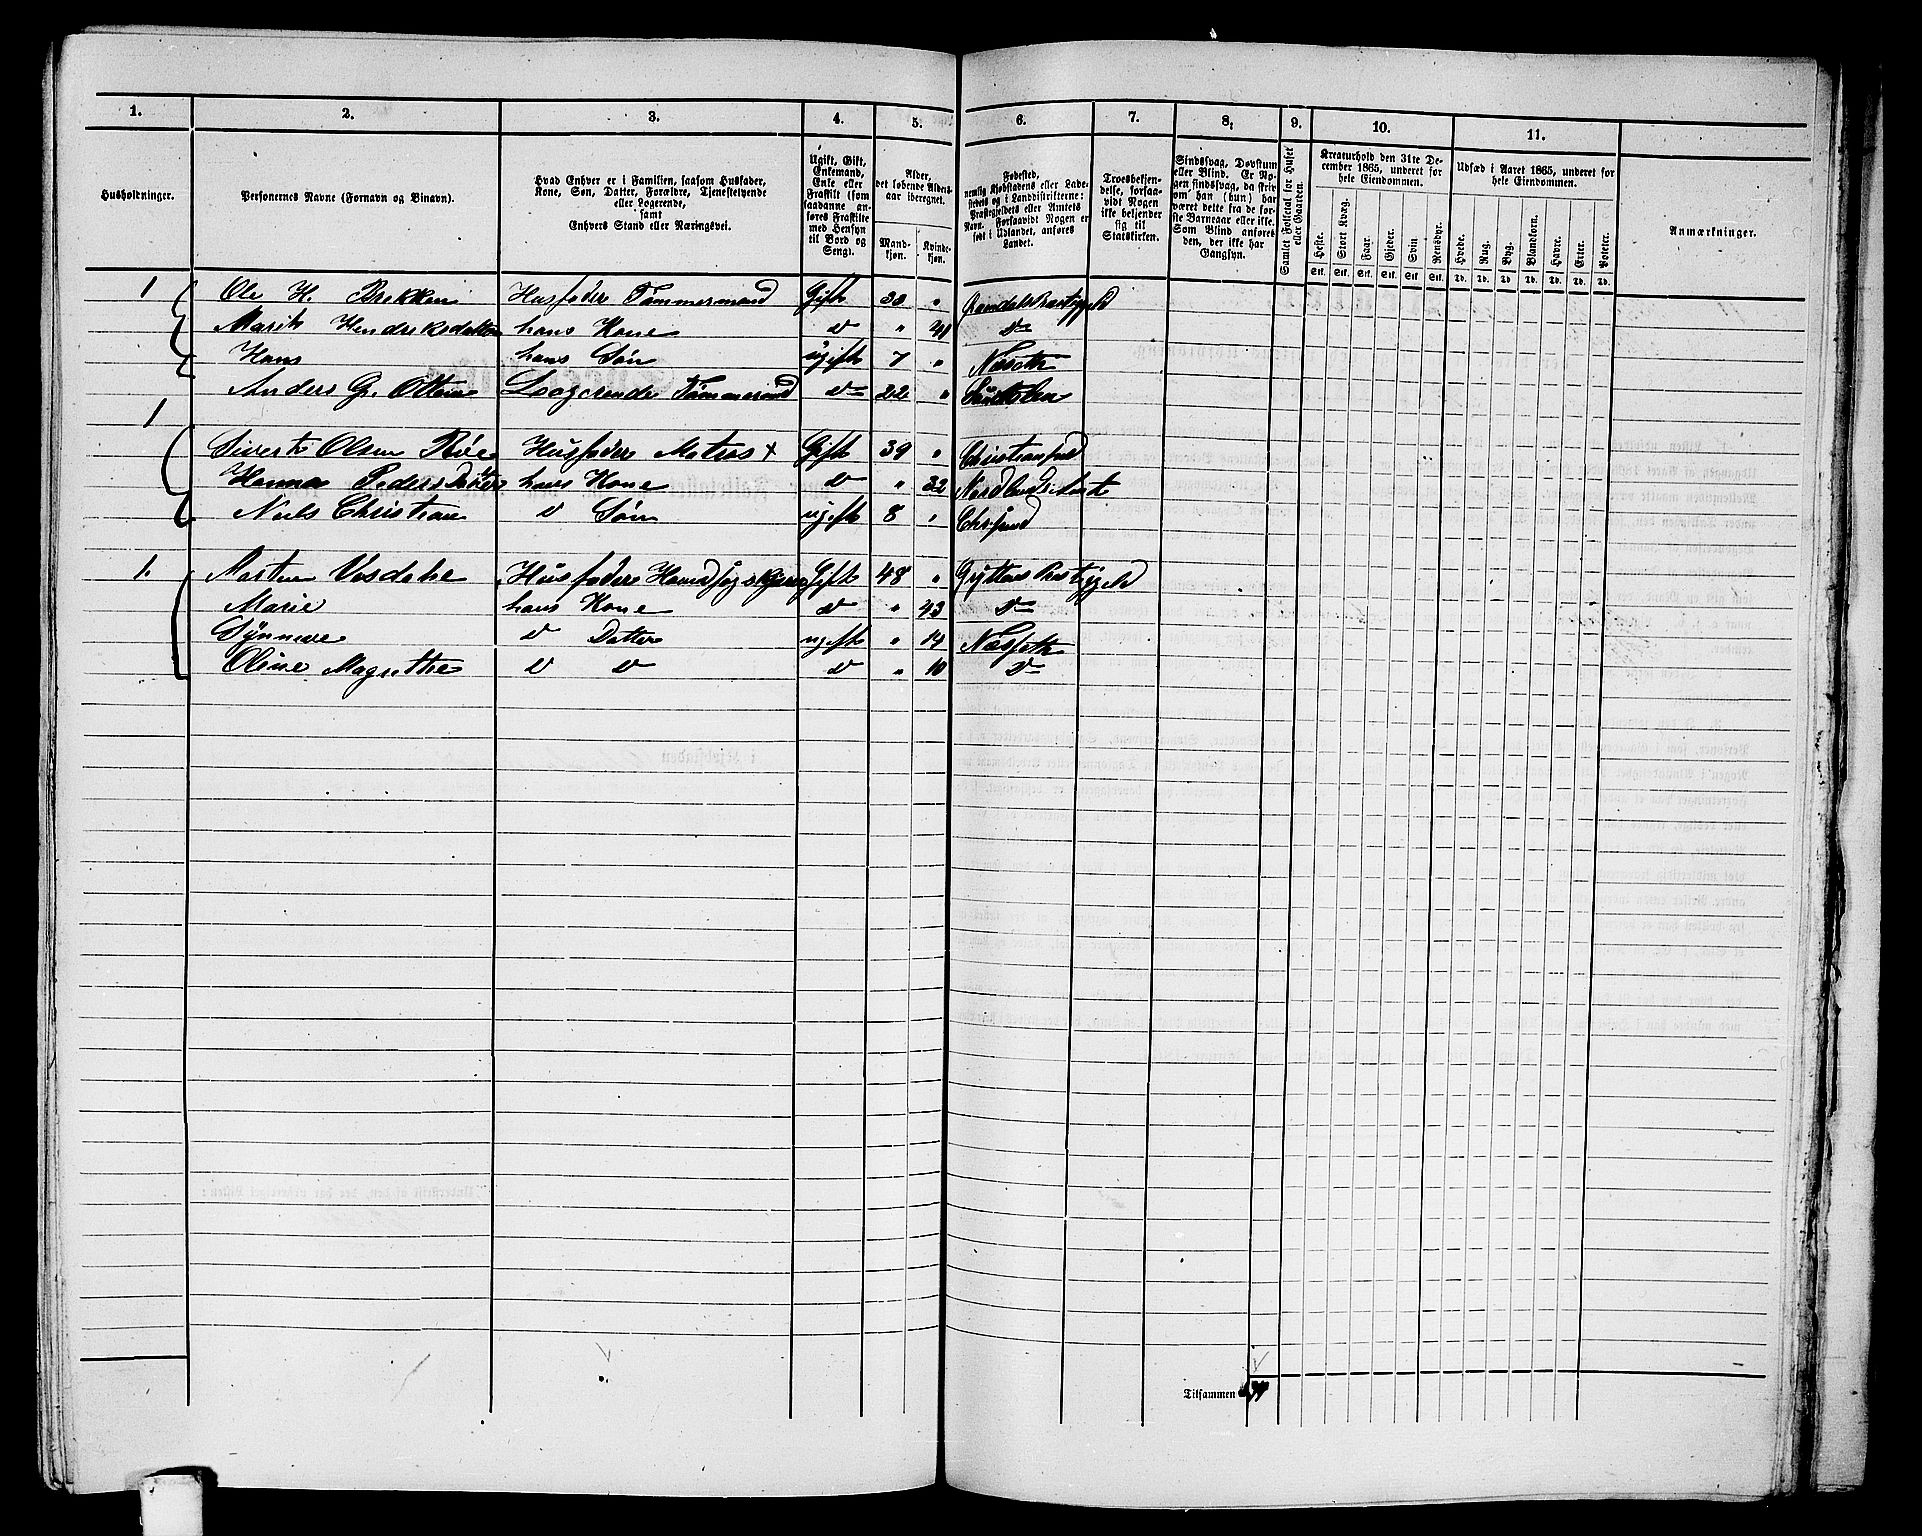 1. 2. 3. 4. 5. 6. 7. 8. 9. 10. 11.
Husholdninger.
Personernes Navne (Fornavn og Binavn).
Hvad Enhver er i Familien, saasom Husfader,
Kone, Søn, Datter, Forældre, Tjenestetyende
eller Logerende,
samt
Enhvers Stand eller Næringsvei.
Ugift, Gift,
Enkemand,
Enke eller
Fraskilt (som
saadanne an-
føres Fraskilte
med Hensyn
til Bord og
Seng).
Alder,
det løbende Alders-
aar iberegnet.
Mand-
kjøn.
Kvinde-
kjøn.
Fødested,
nemlig Kjøbstadens eller Lade-
stedets og i Landdistrikterne:
Præstegjeldets eller Amtets
Navn. Forsaavidt Nogen er
født i Udlandet, anføres
Landet.
Troesbekjen-
delse, forsaa-
vidt Nogen
ikke bekjender
sig til
Statskirken.
Sindssvag, Døvstum
eller Blind. Er No-
gen sindssvag, da skriv
om han (hun) har
været dette fra de før-
ste Barneaar eller ikke.
Som Blind anføres
den, der ikke har
Gangsyn.
Samlet Folketal for Huset
eller Gaarden.
Kreaturhold den 31te De-
cember 1865, underet for
hele Eiendommen.
Heste. Stort Kvæg. Faar. Gjeder. Svin Rensdyr.
Stk. Stk. Stk. Stk. Stk. Stk.
Udsæd i Aaret 1865, underet for
hele Eiendommen.
Hvede. Rug. Byg. Blandkorn. Havre. Erter. Poteter.
Td. Td. Td. Td. Td. Td. Td.
Anmærkninger.
1 Ole H. Brekken Husfader Tømmermand Gift 32 "
Marit Hendriksdatter hans Kone d " 41 d
Hans hans Søn ugift 7 " Næseth
Anders Gr. Ottem Logerende Tømmermand d 22 "
1
Sivert Olsen Røe Husfader Matros + Gift 39 " Christiansund
Hanna Pedersdatter hans Kone d " 32 Nordlands Amt
Nils Christian d Søn ugift 8 " Chrsund
1. Morten Vasdahe Husfader Gift 48 " Præstegjeld
Marie hans Kone d " 43 d
Synneve d Datter ugift " 14 Næseth
Oline Magrethe d d d " 10 d
Tilsammen